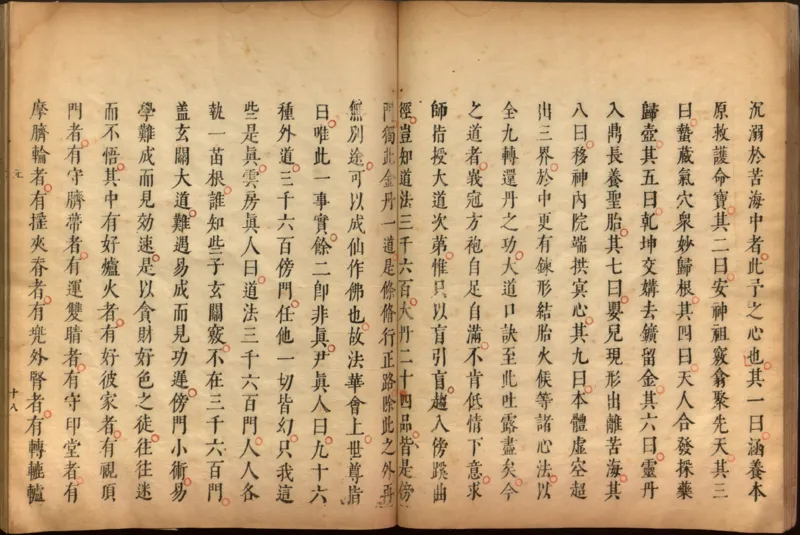 沉溺於苦海中者此予之心也其一曰涵養本
原救護命寶其二曰安神祖竅翕聚先天其三
曰蟄藏氣穴衆妙歸根其四曰天人合發採藥
歸壺其五曰乾坤交媾去鑛留金其六曰靈丹
入鼎長養聖胎其七曰嬰兒現形出離苦海其
八曰移神內院端拱冥心其九曰本體虛空超
出三界於中更有鍊形結胎火候等諸心法以
全九轉還丹之功大道口訣至此吐露盡矣今
之道者峩冠方袍自足自滿不肯低情下意求
師指授大道次第惟只以盲引盲趨入傍蹊曲
徑豈知道法三千六百大丹二十四品皆是傍
門獨此金丹一道是條修行正路除此之外再
無別途可以成仙作佛也故法華會上世尊指
曰唯此一事實餘二卽非眞尹眞人曰九十六
種外道三千六百傍門任他一切皆幻只我這
些是眞雲房眞人曰道法三千六百門人人各
執一苗根誰知些子玄關竅不在三千六百門
盖玄關大道難遇易成而見功遲傍門小術易
學難成而見効速是以貪財好色之徒往往迷
而不悟其中有好爐火者有好彼家者有視頂
門者有守臍蒂者有運雙睛者有守印堂者有
摩臍輪者有搖夾脊者有兜外腎者有轉轆轤
十八